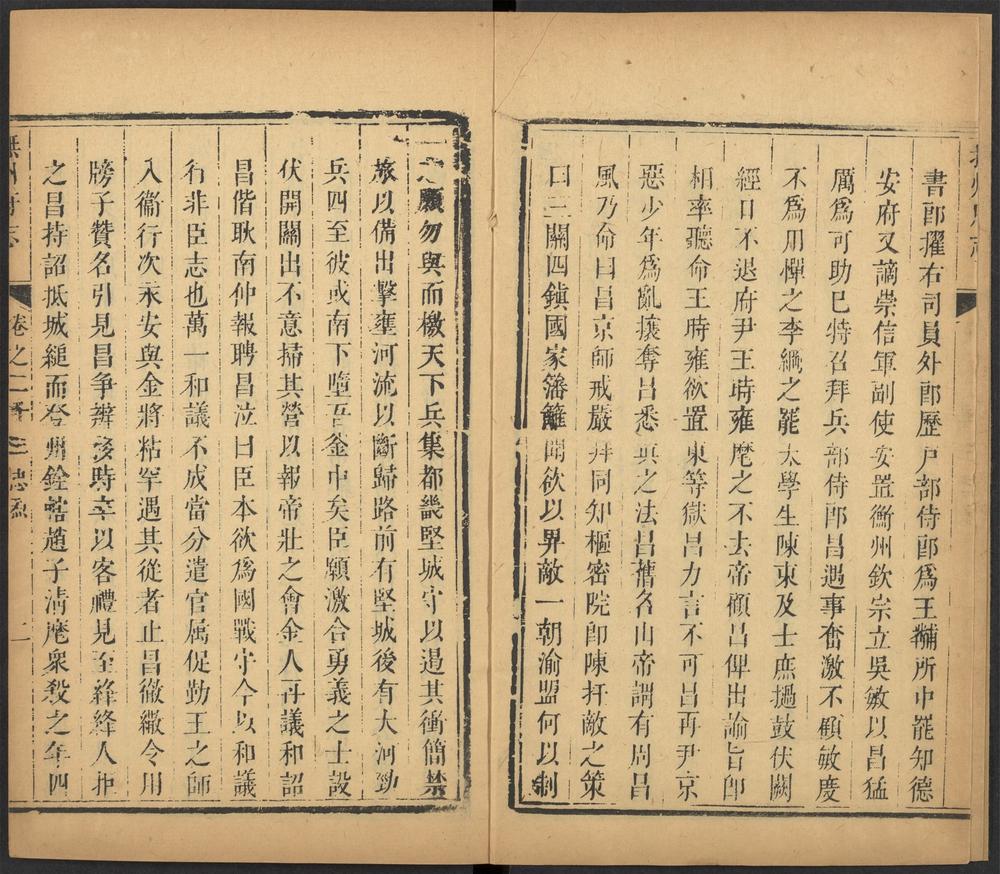 書郎擢右司員外郎歷戸部侍郎爲王黼所中罷知德
安府又謫崇信軍副使安置衡州欽宗立吳敏以昌猛
厲爲可助已特召拜兵部侍郎昌遇事奮激不顧敏慶
不爲用憚之李綱之罷太學生陳東及士庶撾鼓伏闕
經日不退府尹王時雍麾之不去帝顧昌俾出諭旨卽
相率聽命王時雍欲置東等獄昌力言不可昌再尹京
惡少年爲亂攘奪昌悉眞之法昌舊名山帝謂有周昌
風乃命曰昌京師戒嚴拜同知樞密院卽陳扞敵之策
曰三關四鎭國家藩籬聞欲以畀敵一朝渝盟何以制
之願勿與而檄天下兵集都畿堅城守以遏其衝簡禁
旅以備出擊壅河流以斷歸路前有堅城後有大河勁
兵四至彼或南下墮吾釜中矣臣願激合勇義之士設
伏開關出不意掃其營以報帝壯之會金人再議和詔
昌偕耿南仲報聘昌泣曰臣本欲爲國戰守今以和議
行非臣志也萬一和議不成當分遣官屬促勤王之師
入衞行次永安與金將粘罕遇其從者止昌徹繖令用
牓子贊名引見昌爭辨移時卒以客禮見至絳絳人拒
之昌持詔抵城縋而登州鈐轄趙子淸麾衆殺之年四
撫州府志
卷之
二